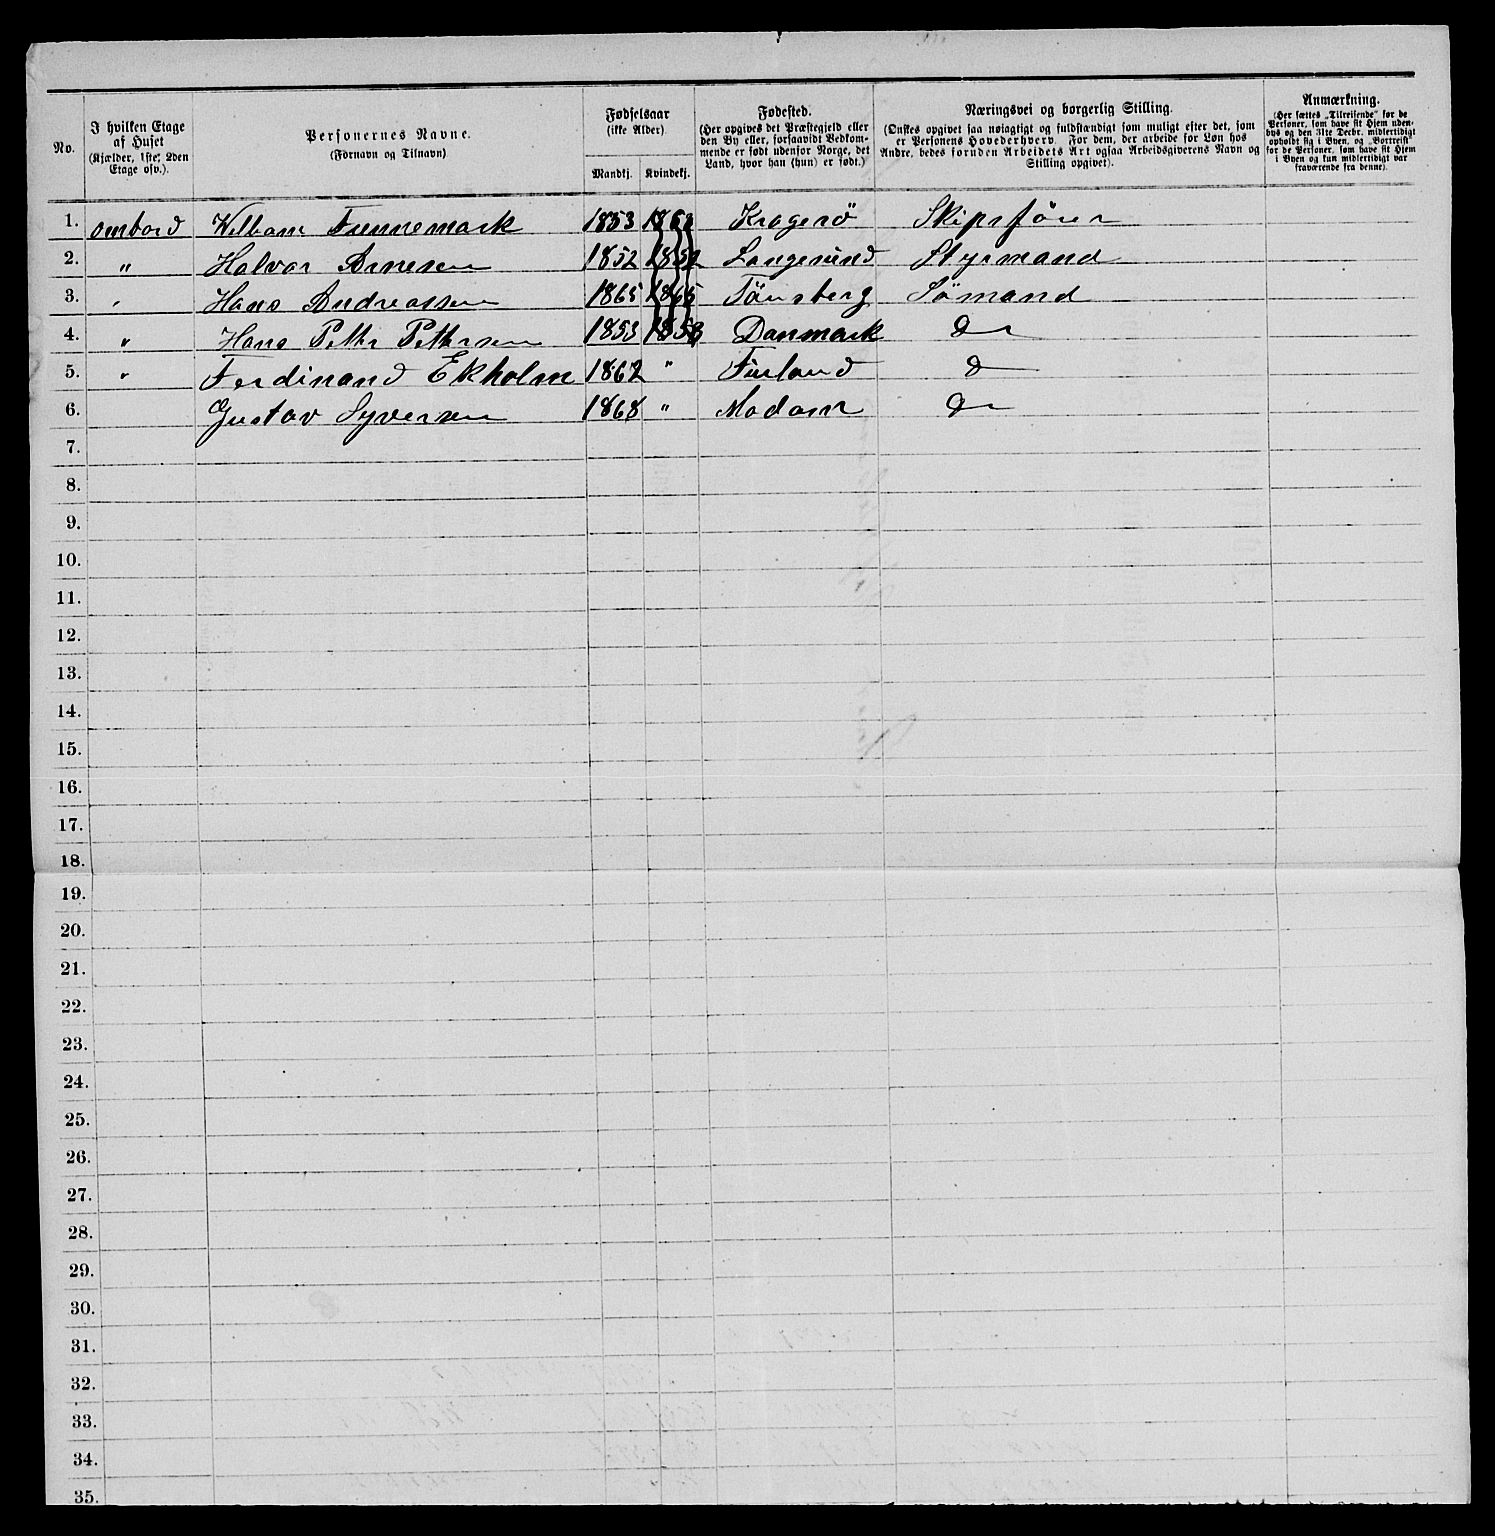 No.
I hvilken Etage af Huset (Kjælder, 1ste, 2den Etage osv.).
Personernes Navne. (Fornavn og Tilnavn)
Fødselsaar (ikke Alder). Mandkj. Kvindekj.
Fødested. (Her opgives det Præstegjeld eller den By eller, forsaavidt Vedkommende er født udenfor Norge, det Land, hvor han (hun) er født.)
Næringsvei og borgerlig Stilling. (Ønskes opgivet saa nøiagtigt og fuldstændigt som muligt efter det, som er Personens Hovederhverv. For dem, der arbeide for Løn hos Andre, bedes foruden Arbeidets Art ogsaa Arbeidsgiverens Navn og Stilling opgivet).
Anmærkning. (Her sættes „Tilreisende" for de Personer, som have sit Hjem udenbys og den 31te Decbr. midlertidigt opholdt sig i Byen, og „Bortreist" for de Personer, som have sit Hjem i Byen og kun midlertidigt var fraværende fra denne).
1. ombord Vilbam Fuennemark 1853 Kragerö Skipsförer
2. " Halvor Arnesen 1852 1852 Langesund Styrmand
3. " Hans Andreassen 1865 1865 Tönsberg Sömand
4. " Hans Petter Pettersen 1853 1853 Danmark Do
5. " Ferdinand Ekholm 1862 " Finland Do
6. Gustav Syversen 1868 " Do
7.
8.
9.
10.
11.
12.
13.
14.
15.
16.
17.
18.
19.
20.
21.
22.
23.
24.
25.
26.
27.
28.
29.
30.
31.
32.
33.
34.
35.